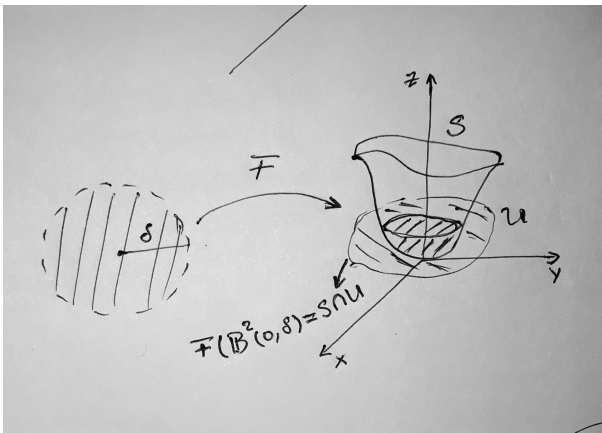 Z
S
F
δ
U
Y
F(B²(0,δ)=S∩U
X